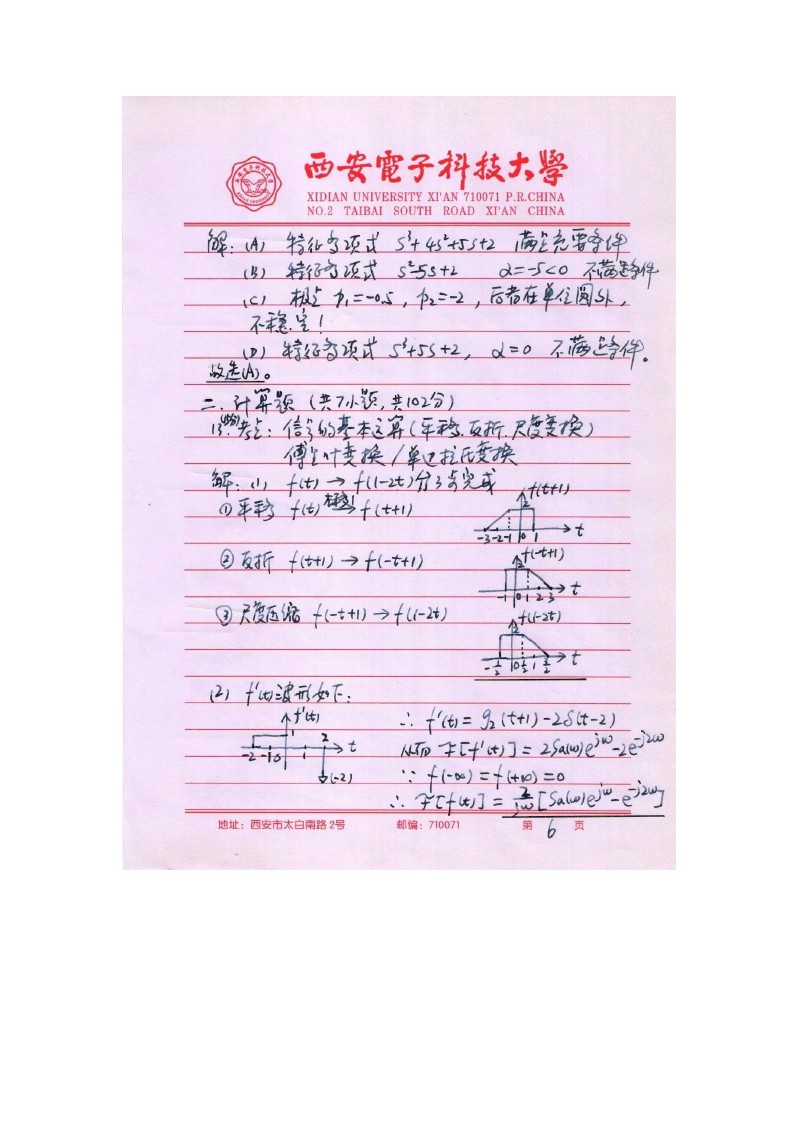 西安電子科技大學
XIDIAN UNIVERSITY XI'AN 710071 P.R.CHINA
NO.2 TAIBAI SOUTH ROAD XI'AN CHINA
解: (A) 特征多项式 S³+4S²+5S+2 满足充要条件
(B) 特征多项式 S²-5S+2 α=-5<0 不满足条件
(C) 极点 p₁=-0.5, p₂=-2, 后者在单位圆外,
不稳定!
(D) 特征多项式 S³+5S+2, α=0 不满足条件。
故选(A)。
二. 计算题 (共7小题, 共102分)
13. 考点: 信号的基本运算(平移、反折、尺度变换)
傅里叶变换/单边拉氏变换
解: (1) f(t) → f(1-2t) 分3步完成
① 平移 f(t) → f(t+1)
f(t+1)
2
-3 -2 -1 0 1 t
② 反折 f(t+1) → f(-t+1)
f(-t+1)
2
-1 0 1 2 3 t
③ 尺度压缩 f(-t+1) → f(1-2t)
f(1-2t)
2
-1/2 0 1/2 1 3/2 t
(2) f'(t)波形如下:
f'(t)
1
2
-2 -1 0 1 t
(-2)
∴ f'(t) = g₂(t+1)-2δ(t-2)
从而 F[f'(t)] = 2Sa(ω)e^{jω}-2e^{-j2ω}
∵ f(-∞) = f(+∞) = 0
∴ F[f(t)] = 2/jω [Sa(ω)e^{jω}-e^{-j2ω}]
地址: 西安市太白南路2号 邮编: 710071 第 6 页